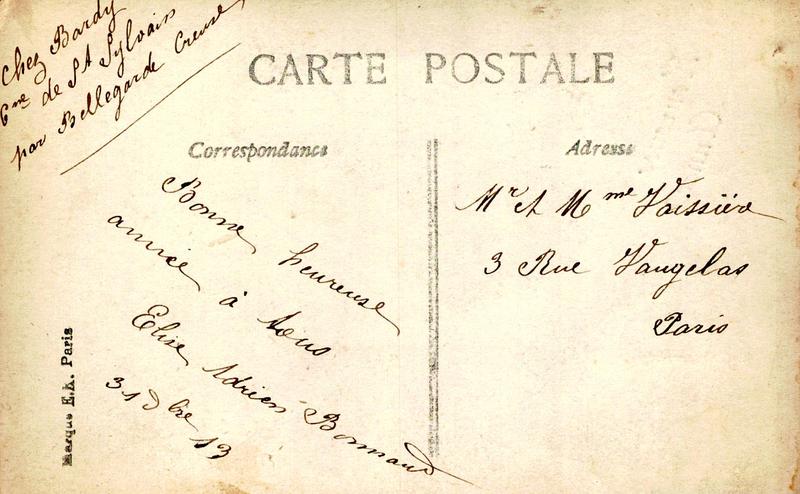 Chez Bardy
Cne de St Sylvain
par Bellegarde Creuse
CARTE POSTALE
Correspondance
Adresse
Bonne heureuse
année à tous
Elise Adrien Bonnaud
31 Dbre 13
Mr et Mme Vaissière
3 Rue Vaugelas
Paris
Marque E.K. Paris